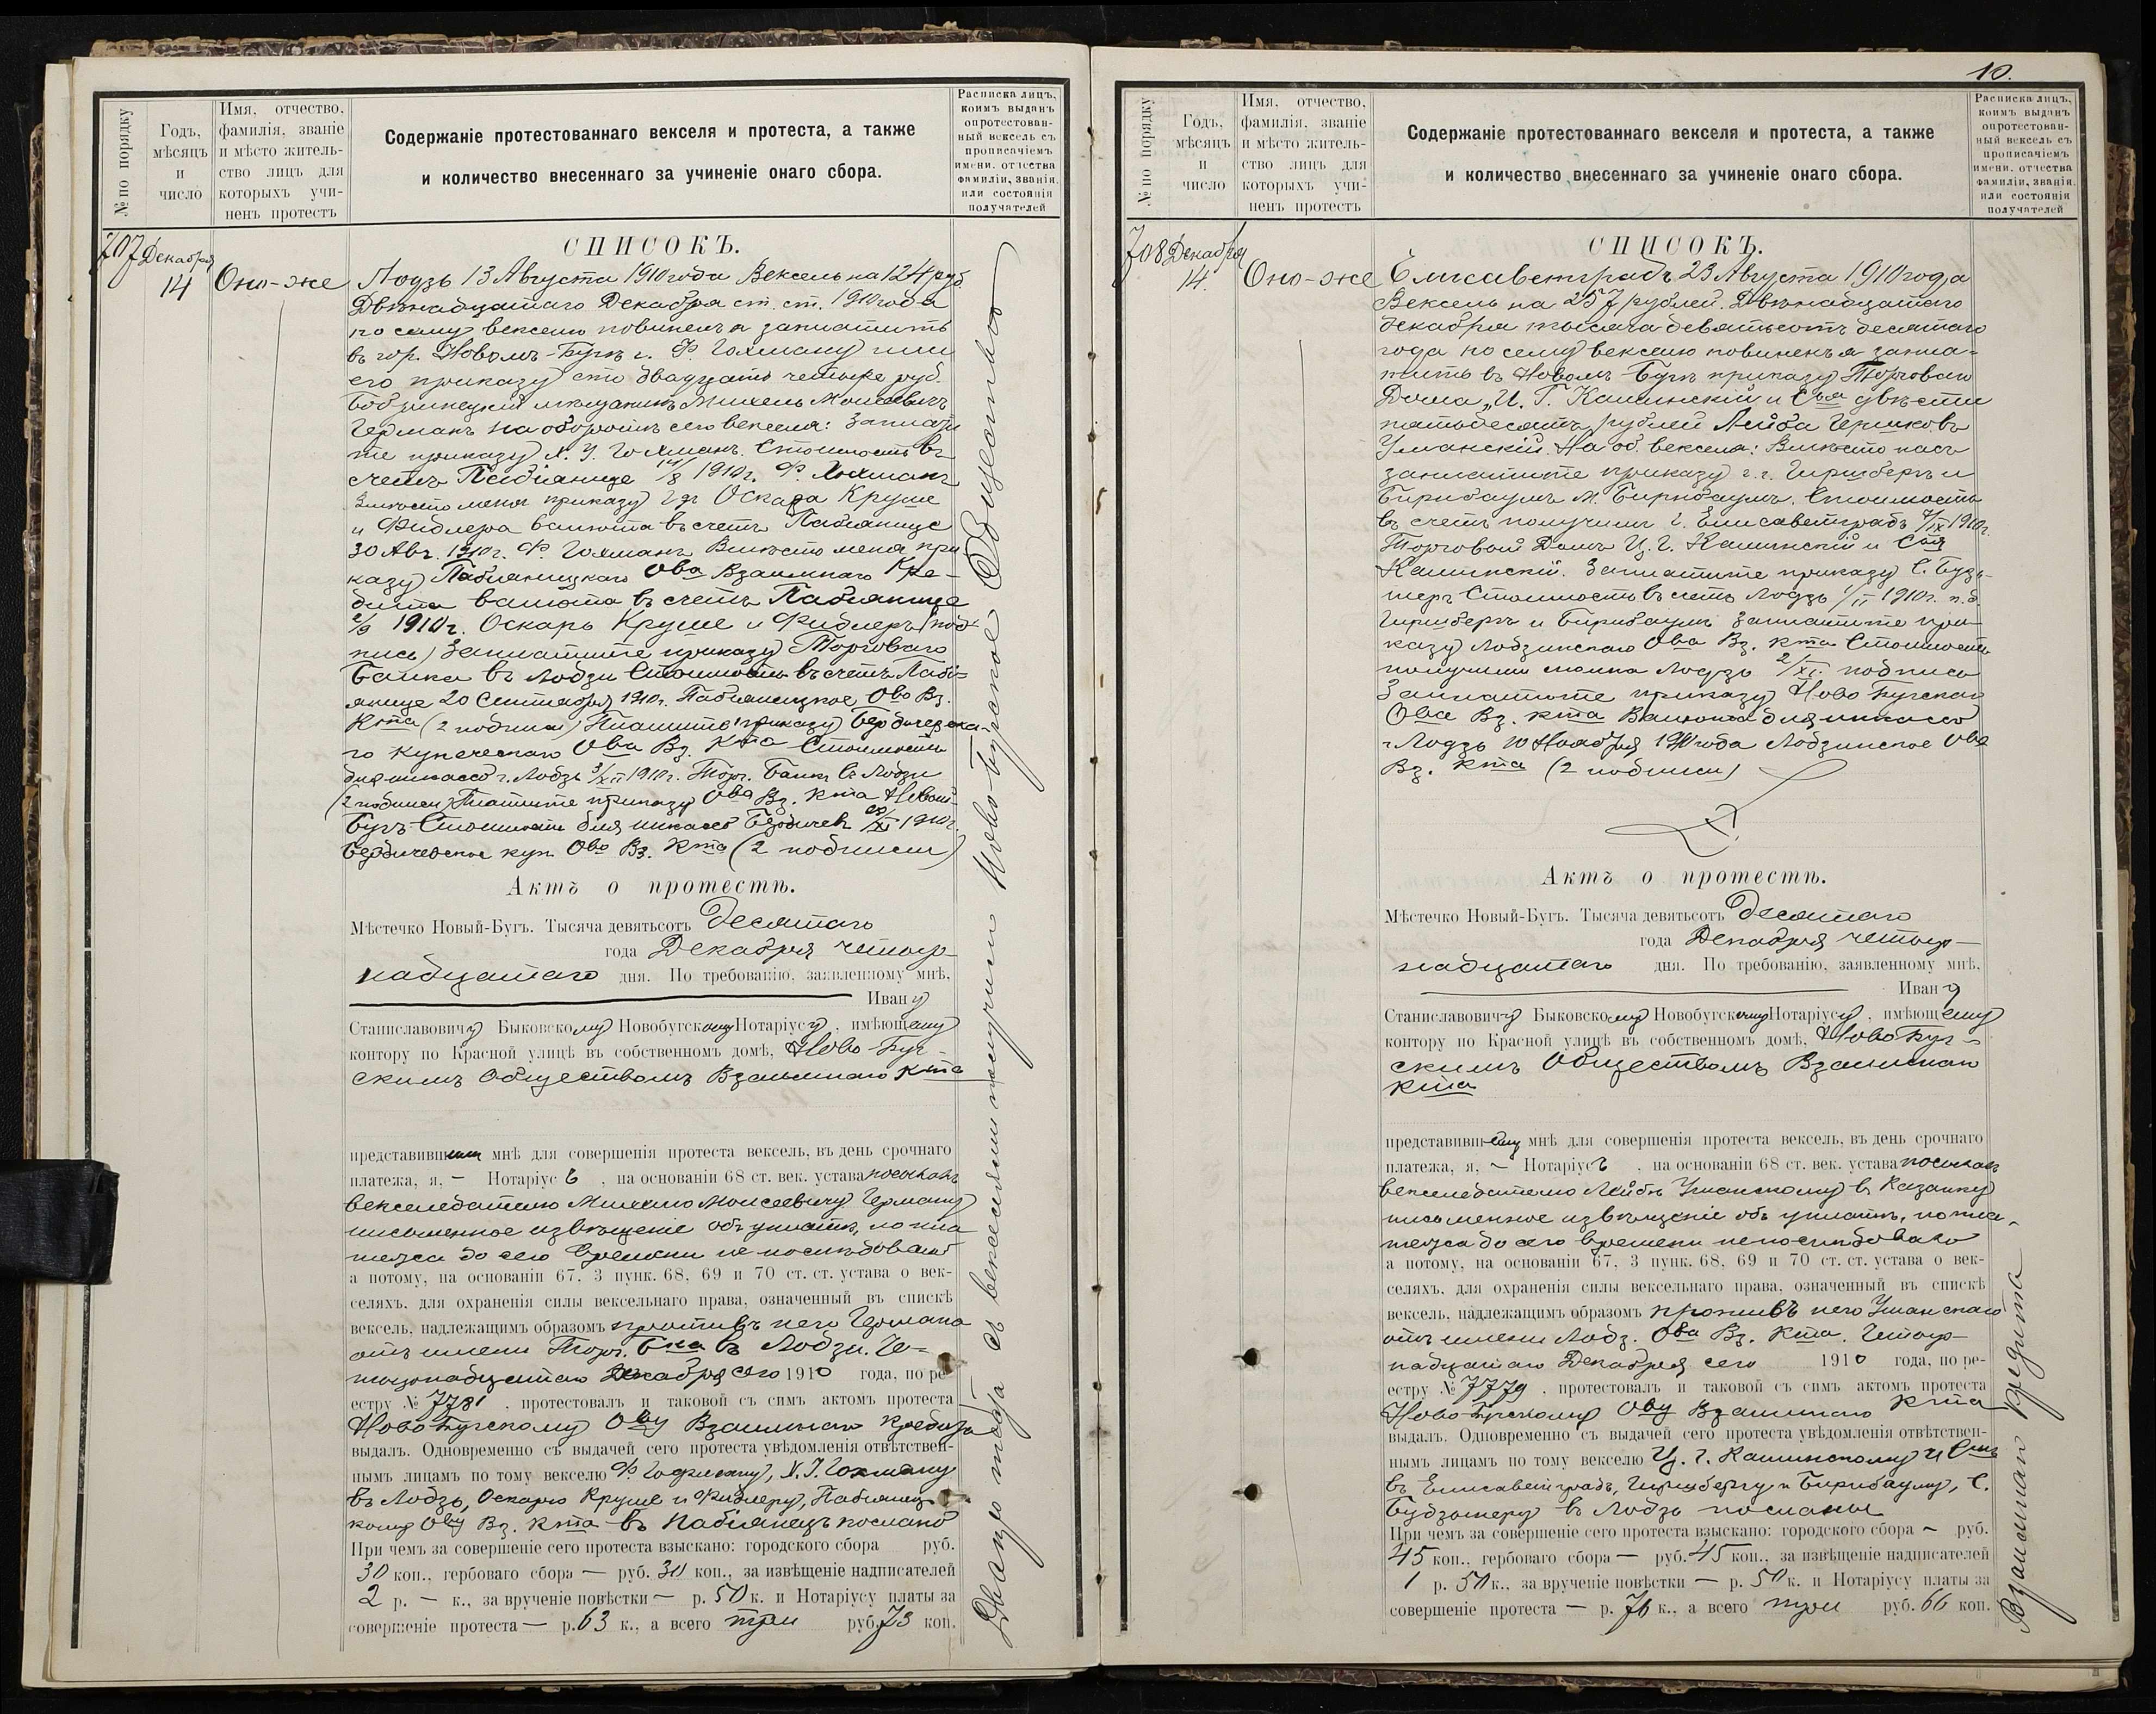 № по порядку
Годъ,
мѣсяцъ
и
число
Имя, отчество,
фамилія, званіе
и мѣсто житель-
ство лицъ для
которыхъ учи-
ненъ протестъ
Содержаніе протестованнаго векселя и протеста, а также
и количество внесеннаго за учиненіе онаго сбора.
Расписка лицъ,
коимъ выданъ
опротестован-
ный вексель съ
прописаніемъ
имени, отчества
фамиліи, званія,
или состоянія
получателей
707 Декабря
14
Оно-же
СПИСОКЪ.
Лодзь 13 Августа 1910 года Вексель на 124 руб.
Двѣнадцатаго Декабря ст. ст. 1910 года
по сему векселю повиненъ я заплатить
въ гор. Новомъ-Бугѣ г. Ф. Гохману или
его приказу сто двадцать четыре руб.
Бобринецкій мѣщанинъ Михель Моисеевичъ
Германъ На оборотѣ сего векселя: Заплати
те приказу Л. У. Гохманъ. Стоимость въ
счетъ Пабіанице 14/8 1910 г. Ф. Гохманъ
Вмѣсто меня приказу г.г. Оскара Круше
и Фидлера валюта въ счетъ Пабіанице
30 Авг. 1910 г. Ф. Гохманъ Вмѣсто меня при
казу Пабіаницкаго Ова Взаимнаго Кре-
дита валюта въ счетъ Пабіанице
2/9 1910 г. Оскаръ Круше и Фидлеръ (под-
пись) Заплатите приказу Торговаго
Банка въ Лодзи Стоимость въ счетъ Пабі-
янице 20 Сентября 1910 г. Пабіаницкое Ово Вз.
Кта (2 подписи) Платите приказу Бердичевска-
го купеческаго Ова Вз. Кта Стоимость
для инкассо г. Лодзь 3/XII 1910 г. Торг. Банк въ Лодзи
(2 подписи) Платите приказу Ова Вз. Кта Новый-
Бугъ Стоимость для инкассо Бердичевъ /XI 1910 г.
Бердичевское куп. Ово Вз. Кта (2 подписи)
Актъ о протестѣ.
Мѣстечко Новый-Бугъ. Тысяча девятьсотъ десятаго
года Декабря четыр-
надцатаго дня. По требованію, заявленному мнѣ,
Ивану
Станиславовичу Быковскому Новобугскому Нотаріусу, имѣющему
контору по Красной улицѣ въ собственномъ домѣ, Ново-Буг-
скимъ Обществомъ Взаимнаго Кта
представившимъ мнѣ для совершенія протеста вексель, въ день срочнаго
платежа, я, — Нотаріусъ, на основаніи 68 ст. век. устава послалъ
векселедателю Михелю Моисеевичу Герману
письменное извѣщеніе объ уплатѣ, но пла
тежа до сего времени не послѣдовало
а потому, на основаніи 67, 3 пунк. 68, 69 и 70 ст. ст. устава о век-
селяхъ, для охраненія силы вексельнаго права, означенный въ спискѣ
вексель, надлежащимъ образомъ противъ него Германа
отъ имени Торг. Бка въ Лодзи. Че-
тырнадцатаго Декабря сего 1910 года, по ре-
естру № 7781, протестовалъ и таковой съ симъ актомъ протеста
Ново-Бугскому Ову Взаимнаго Кредита
выдалъ. Одновременно съ выдачей сего протеста увѣдомленія отвѣтствен-
нымъ лицамъ по тому векселю Ф. Гохману, Л. У. Гохману
въ Лодзь, Оскару Круше и Фидлеру, Пабіаниц
кому Ову Вз. Кта въ Пабіанецъ послано
При чемъ за совершеніе сего протеста взыскано: городского сбора руб.
30 коп., гербоваго сбора — руб. 30 коп., за извѣщеніе надписателей
2 р. — к., за врученіе повѣстки — р. 50 к. и Нотаріусу платы за
совершеніе протеста — р. 63 к., а всего три руб. 73 коп.
векселями получилъ Ново-Бугское Общество
10.
№ по порядку
Годъ,
мѣсяцъ
и
число
Имя, отчество,
фамилія, званіе
и мѣсто житель-
ство лицъ для
которыхъ учи-
ненъ протестъ
Содержаніе протестованнаго векселя и протеста, а также
и количество внесеннаго за учиненіе онаго сбора.
Расписка лицъ,
коимъ выданъ
опротестован-
ный вексель съ
прописаніемъ
имени, отчества
фамиліи, званія,
или состоянія
получателей
708 Декабря
14.
Оно-же
СПИСОКЪ.
Елисаветградъ 23 Августа 1910 года
Вексель на 257 рублей. Двѣнадцатаго
Декабря тысяча девятьсотъ десятаго
года по сему векселю повиненъ я запла-
тить въ Новомъ-Бугѣ приказу Торговаго
Дома „И. Г. Калинскій и Сья двѣсти
пятьдесятъ рублей Лейба Гершковъ
Уманскій. На об. векселя: Вмѣсто насъ
заплатите приказу г.г. Гиршбергъ и
Бирнбаумъ Л. Бирнбаумъ. Стоимость
въ счетъ получили г. Елисаветградъ 7/IX 1910 г.
Торговый Домъ Ц. Г. Калинскій и Сья
Калинскій. Заплатите приказу С. Будз-
неръ Стоимость въ счетъ Лодзь 1/11 1910 г. п. д.
Гиршбергъ и Бирнбаумъ Заплатите при-
казу Лодзинскаго Ова Вз. Кта Стоимость
получили сполна Лодзь 2/XI подпись
Заплатите приказу Ново Бугскаго
Ова Вз. Кта Валюта для инкассо
г. Лодзь 10 Ноября 1910 года Лодзинское Ово
Вз. Кта (2 подписи)
Актъ о протестѣ.
Мѣстечко Новый-Бугъ. Тысяча девятьсотъ десятаго
года Декабря четыр-
надцатаго дня. По требованію, заявленному мнѣ,
Ивану
Станиславовичу Быковскому Новобугскому Нотаріусу, имѣющему
контору по Красной улицѣ въ собственномъ домѣ, Ново Буг-
скимъ Обществомъ Взаимнаго
Кта
представившему мнѣ для совершенія протеста вексель, въ день срочнаго
платежа, я, — Нотаріусъ, на основаніи 68 ст. век. устава послалъ
векселедателю Лейбѣ Уманскому въ Казанку
письменное извѣщеніе объ уплатѣ, но пла-
тежа до сего времени не послѣдовало
а потому, на основаніи 67, 3 пунк. 68, 69 и 70 ст. ст. устава о век-
селяхъ, для охраненія силы вексельнаго права, означенный въ спискѣ
вексель, надлежащимъ образомъ противъ него Уманскаго
отъ имени Лодз. Ова Вз. Кта. Четыр-
надцатаго Декабря сего 1910 года, по ре-
естру № 7779, протестовалъ и таковой съ симъ актомъ протеста
Ново Бугскому Ову Взаимнаго Кта
выдалъ. Одновременно съ выдачей сего протеста увѣдомленія отвѣтствен-
нымъ лицамъ по тому векселю Ц. Г. Калинскому и Сья
въ Елисаветградъ, Гиршбергу и Бирнбауму, С.
Будзьнеру въ Лодзь посланы
При чемъ за совершеніе сего протеста взыскано: городского сбора — руб.
45 коп., гербоваго сбора — руб. 45 коп., за извѣщеніе надписателей
1 р. 50 к., за врученіе повѣстки — р. 50 к. и Нотаріусу платы за
совершеніе протеста — р. 76 к., а всего три руб. 66 коп.
Взаимнаго Кредита